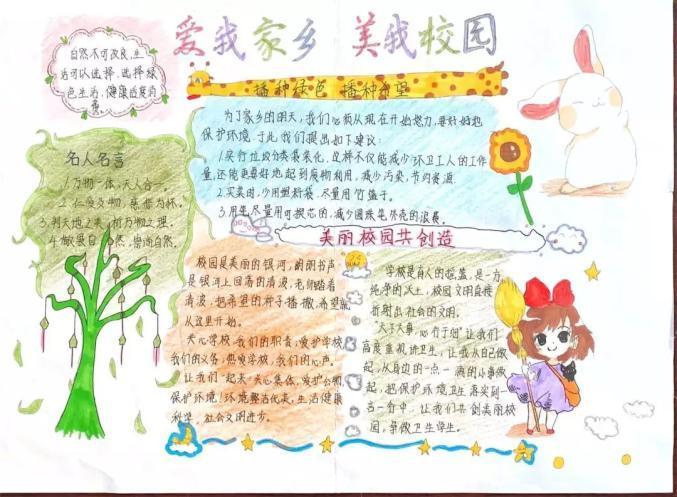 爱我家乡 美我校园
自然不可改良,生
活可以选择,选择绿
色生活,健康适度消
费。
播种绿色 播种希望
为了家乡的明天,我们必须从现在开始努力,要好好地
保护环境,于此我们提出如下建议:
1.实行垃圾分类袋装化,这样不仅能减少环卫工人的工作
量,还能更好地起到废物利用,减少污染,节约资源.
2.买菜时,少用塑料袋,尽量用竹篮子。
3.用笔尽量用可换芯的,减少圆珠笔外壳的浪费。
名人名言
1.万物一体,天人合一。
2.仁爱及物,慈悲为怀。
3.判天地之美,析万物之理。
4.做衷自然,崇尚自然。
美丽校园共创造
校园是美丽的银河,朗朗书声
是银河上回荡的清波,老师踏着
清波,把希望的种子播撒,希望就
从这里开始。
关心学校,我们的职责,爱护学校
我们的义务,热爱学校,我们的心声。
让我们一起来:关心集体,爱护公物,
保护环境!环境整洁优美,生活健康
社会文明进步。
学校是育人的摇篮,是一方
纯净的沃土,校园文明直接
折射出社会的文明。
天下大事,必作于细"让我们
高度重视讲卫生,让我从自己做
起,从身边的一点一滴的小事做
起,把保护环境卫生落实到一
言一行中,让我们共创美丽校
园,争做卫生学生。